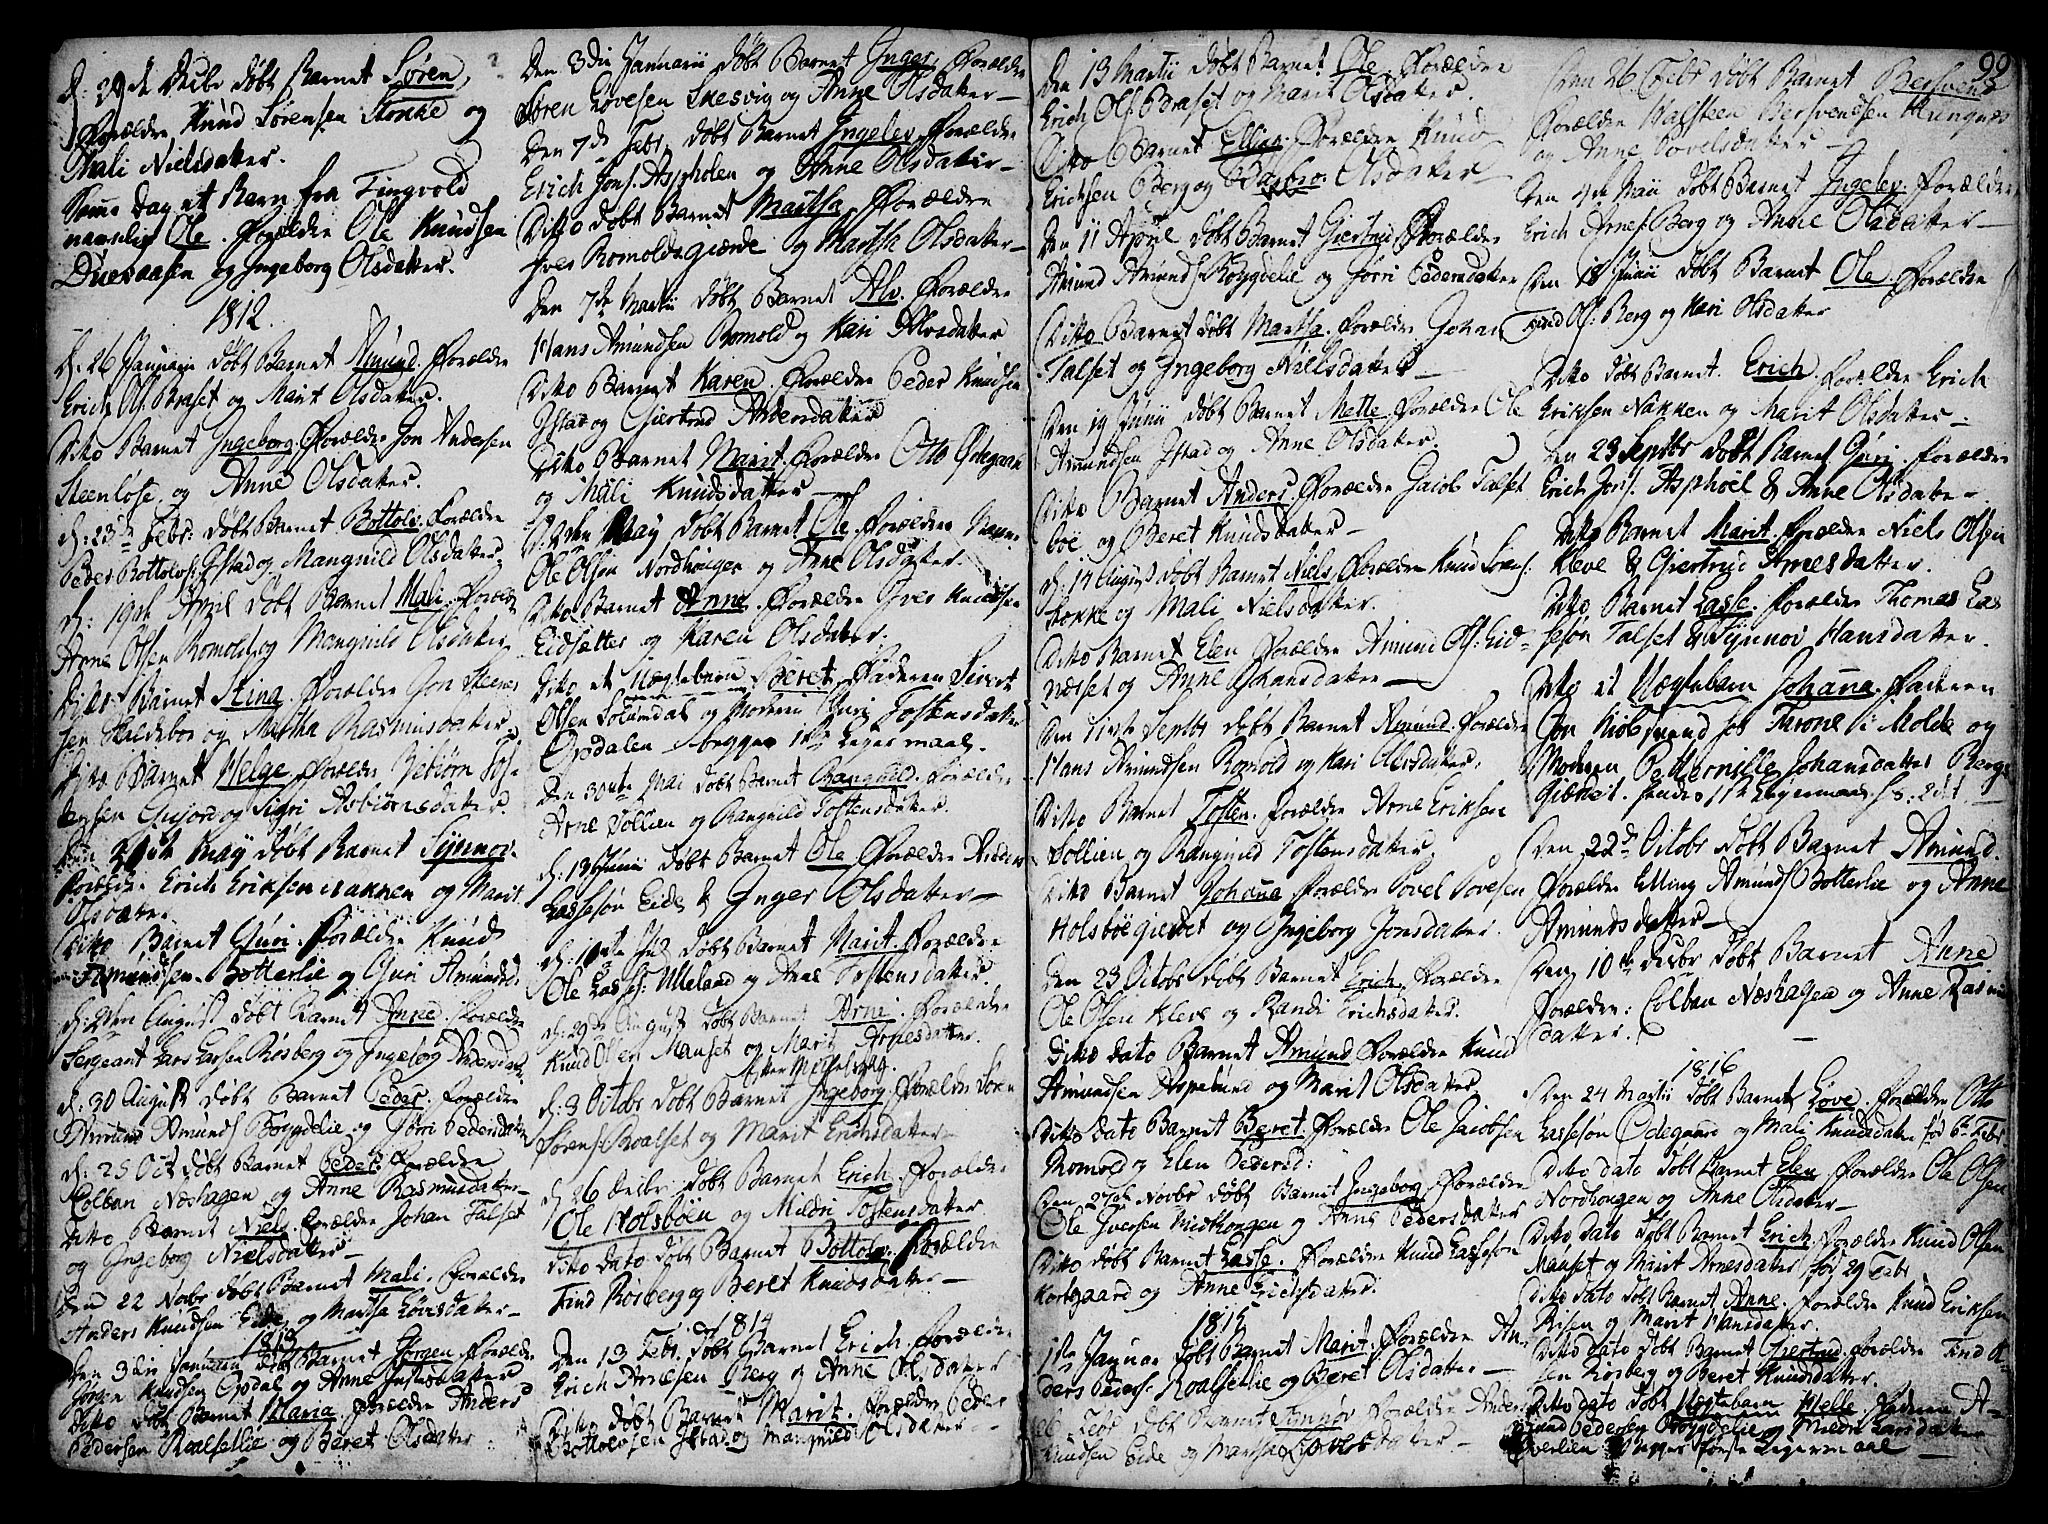 d: 29de Decbr døbt Barnet Søren,
Forældre Knud Sørensen Stokke og
Mali Nielsdatter.
Samme Dag et Barn fra Tingvold
navnlig Ole. Forældre Ole Knudsen
og Ingeborg Olsdatter.
1812.
d: 26 Januarii døbt Barnet Amund. Forældre
Erich Ols: Braset og Marit Olsdatter.
Ditto Barnet Ingeborg. Forældre Jon Andersen
Steenløse og Anne Olsdatter.
d: 23de Febr: døbt Barnet Bottolv. Forældre
Peder Bottolvs: Istad og Mangnild Olsdatter
d: 19de April døbt Barnet Mali. Forældre
Arne Olsen Romold og Mangnild Olsdatter
Ditto Barnet Stina. Forældre Jon
og Martha Rasmusdatter
Ditto Barnet Helge. Forældre
og Sigri Asbiørnsdatter.
May døbt Barnet Synnov.
Forældre Erich Eriksen Nakken og Marit
Olsdatter
Ditto Barnet Guri. Forældre Knud
Amundsen Botterlie og Guri Amundsd:
August døbt Barnet Anne. Forældre
Sergeant Lars Larsen Røsberg og Ingeborg Andersdat:
d: 30 August døbt Barnet Peder. Forældre
Amund Amunds: Bøygdelie og Jøri Pedersdatter
d: 25 Oct døbt Barnet Peder. Forældre
Colban Næshagen og Anne Rasmusdatter
Ditto Barnet Niels. Forældre Johan Talset
og Ingeborg Nielsdatter
Den 22 Novbr døbt Barnet Mali. Forældre
Anders Knudsen Eide og Martha Løvesdatter
1813
Den 3die Januarii døbt Barnet Jørgen. Forældre
Jørgen Knudsen Opdal og Anne
Ditto døbt Barnet Maria. Forældre Anders
Pedersen Roalsetlie og Beret Olsdatter
Den 3die Januarii døbt Barnet Inger. Forældre
Søren Løvesen Skesvig og Anne Olsdatter
Den 7de Febr. døbt Barnet Ingelev. Forældre
Erich Jons: Aspholen og Anne Olsdatter
Ditto døbt Barnet Martha. Forældre
Iver Romoldsgiærde og Martha Olsdatter
Den 7de Martii døbt Barnet Alv. Forældre
Hans Amundsen Romold og Kari Alvsdatter
Ditto Barnet Karen. Forældre Peder Knudsen
Istad og Giertrud Andersdatter
Ditto Barnet Marit. Forældre Otto Ødegaard
og Mali Knudsdatter
May døbt Barnet Ole. Forældre
Ole Olsen Nordhongen og Anne Olsdatter.
Ditto Barnet Anne. Forældre Iver Knudsen
Eidsætter og Karen Olsdatter.
Ditto et Uægtebarn Beret. Faderen Sivert
Olsen Solemdal og Moderen Guri Tostensdatter
Opsdalen begges 1ste Legermaal.
Den 30te Mai døbt Barnet Rangnild. Forældre
Arne Sollien og Rangnild Tostensdatter.
d: 13 Junii døbt Barnet Ole. Forældre Anders
Lassesøn Eide & Inger Olsdatter
Juli døbt Barnet Marit. Forældre
Ole Lasses: Ulleland og Anne Tostensdatter.
d: 29de August døbt Barnet Arne. Forældre
Knud Olsen Mauset og Marit Arnesdatter.
Efter Michelsdag.
d: 3 Octobr døbt Barnet Ingeborg. Forældre Søren
Sørens: Roalset og Marit Erichsdatter
d: 26 Decbr: døbt Barnet Erich. Forældre
Ole Holsbøen og Mildri Tostensdatter.
Ditto dato døbt Barnet Bottolv. Forældre
Find Røsberg og Beret Knudsdatter
1814
Den 13 Febr. døbt Barnet Erich. Forældre
Erich Arnesen Berg og Anne Olsdatter
Ditto døbt Barnet Marit. Forældre Peder
Bottolvsen Istad og Mangnild Olsdatter
99
Den 13 Martii døbt Barnet Ole. Forældre
Erich Ols: Braset og Marit Olsdatter.
Ditto Barnet Ellen. Forældre Knud
Ericksen Berg og Barbro Olsdatter
Den 11 April døbt Barnet Giertrud. Forældre
Amund Amunds: Bøygdelie og Jøri Pedersdatter
Ditto Barnet døbt Martha. Forældre Johan
Talset og Ingeborg Nielsdatter
Den 19 Junii døbt Barnet Mette. Forældre Ole
Amundsen Istad og Anne Olsdatter.
Ditto Barnet Anders. Forældre Jacob Talset
bøe og Beret Knudsdatter
d: 14 August døbt Barnet Niels. Forældre Knud Sørens:
Stokke og Mali Nielsdatter.
Ditto Barnet Elen. Forældre Amund Ols: Eid=
næsset og Anne Johansdatter
Den 11te Septbr døbt Barnet Amund. Forældre
Hans Amundsen Romold og Kari Alvsdatter.
Ditto Barnet Tosten. Forældre Arne Eriksen
Sollien og Rangnild Tostensdatter
Ditto Barnet Johanna. Forældre Povel Povelsen
Holsbøegierdet og Ingeborg Jonsdatter.
Den 23 Octobr døbt Barnet Erich. Forældre
Ole Olsen Kleve og Randi Erichsdatter.
Ditto dato Barnet Amund. Forældre Knud
Amundsen Aspelund og Marit Olsdatter
Ditto dato Barnet Beret. Forældre Ole Jacobsen
Romold og Elen Pedersd:
Den 27de Novbr døbt Barnet Ingeborg. Forældre
Ole Iversen Midthongen og Anne Pedersdatter
Ditto døbt Barnet Lasse. Forældre Knud Lassesøn
Kortgaard og Anne Erichsdatter.
1815
1ste Januar døbt Barnet Marit. Forældre An=
ders Peders: Roalsetlie og Beret Olsdatter
Febr døbt Barnet Synnøv. Forældre Anders
Knudsen Eide og Martha Løvesdatter.
Den 26 Febr døbt Barnet Bersvend
Forældre Halsteen Bersvendsen Hungnes
og Anne Povelsdatter
Den 4de Maii døbt Barnet Ingelev. Forældre
Erich Arnes: Berg og Anne Olsdatter
Den 18 Junii døbt Barnet Ole. Forældre
Find Ols: Berg og Kari Olsdatter
Ditto døbt Barnet. Erich. Forældre Erich
Eriksen Nakken og Marit Olsdatter
Den 23 Septbr døbt Barnet Guri. Forældre
Erich Jons: Asphoel & Anne Olsdatter
Ditto Barnet Marit. Forældre Niels Olsen
Kleve & Giertrud Arnesdatter.
Ditto Barnet Lasse. Forældre Thomas Las
sesøn Talset & Synnov Hansdatter.
Ditto et Uægtebarn Johanna. Faderen
Jon hos Throne i Molde og
Moderen Petternille Johansdatter Bergs
Giærdet.
Den 22de Octobr døbt Barnet Amund.
Forældre Elling Amunds: Botterlie og Anne
Amundsdatter
Den 10de Decbr døbt Barnet Anne
Forældre: Colban Næshagen og Anne Rasmus
datter.
1816
Den 24 Martii døbt Barnet Løve. Forældre Otto
Lassesøn Ødegaard og Mali Knudsdatter fød 6te Febr.
Ditto dato døbt Barnet Elen. Forældre Ole Olsen
Nordhongen og Anne Olsdatter
Ditto dato døbt Barnet Erich. Forældre Knud Olsen
Mauset og Marit Arnesdatter fød 29 Febr
Ditto dato døbt Barnet Anne. Forældre Knud Eriksen
Risen og Marit Hansdatter.
Ditto dato døbt Barnet Giertrud. Forældre Find
Røsberg og Beret Knudsdatter.
Ditto dato døbt Uægtebarn Helle. Faderen A=
mund Pedersen Bøygdelie og Mildri Larsdatter
begges første Legermaal